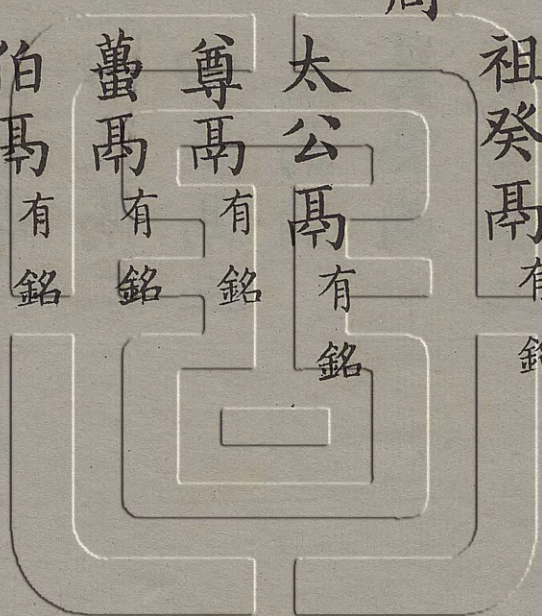 祖癸鬲有銘
周
太公鬲有銘
尊鬲有銘
蠆鬲有銘
伯鬲有銘